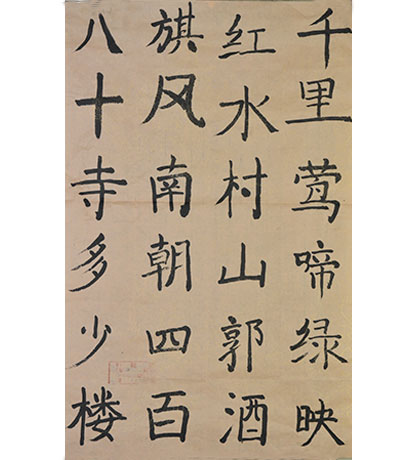 千里莺啼绿映
红水村山郭酒
旗风南朝四百
八十寺多少楼